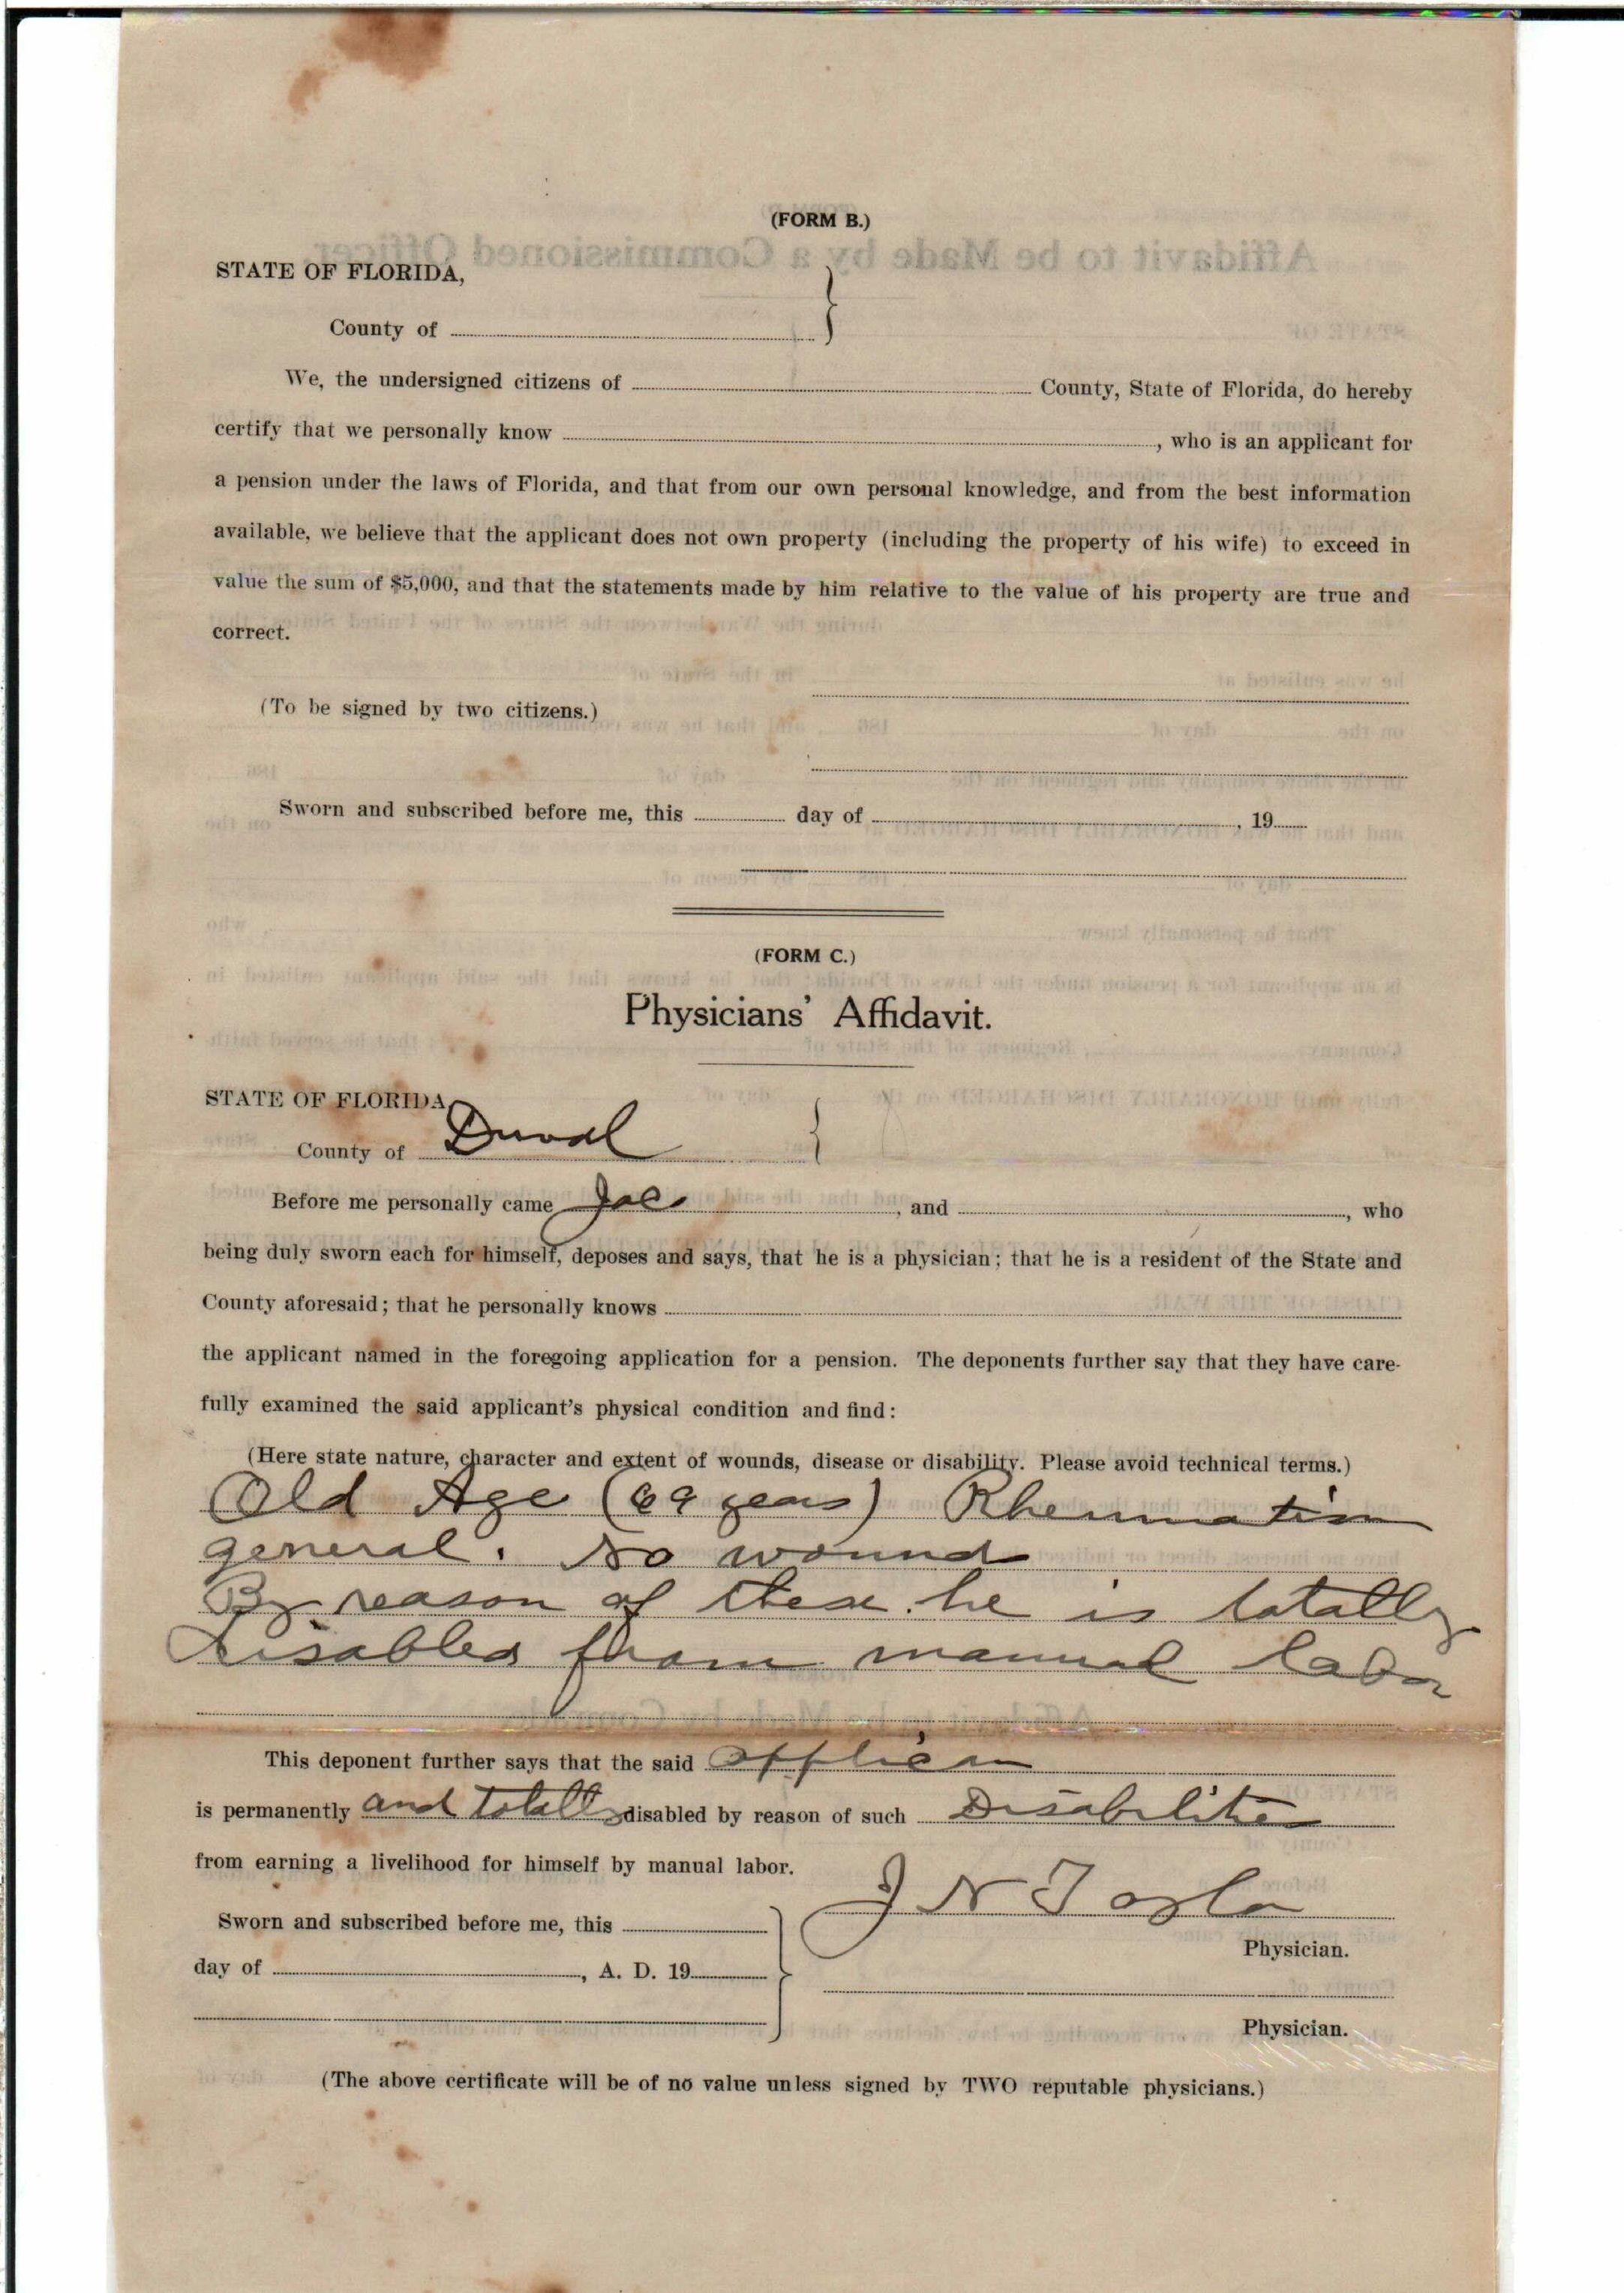 (FORM B.)
STATE OF FLORIDA,
County of
We, the undersigned citizens of County, State of Florida, do hereby
certify that we personally know , who is an applicant for
a pension under the laws of Florida, and that from our own personal knowledge, and from the best information
available, we believe that the applicant does not own property (including the property of his wife) to exceed in
value the sum of $5,000, and that the statements made by him relative to the value of his property are true and
correct.
(To be signed by two citizens.)
Sworn and subscribed before me, this day of , 19
(FORM C.)
Physicians' Affidavit.
STATE OF FLORIDA,
County of Duval
Before me personally came , and , who
being duly sworn each for himself, deposes and says, that he is a physician; that he is a resident of the State and
County aforesaid; that he personally knows
the applicant named in the foregoing application for a pension. The deponents further say that they have care-
fully examined the said applicant's physical condition and find:
(Here state nature, character and extent of wounds, disease or disability. Please avoid technical terms.)
Old Age (69 years) Rheumatism
general. No wound
By reason of these he is totally
disabled from manual labor
This deponent further says that the said applican
is permanently and totally disabled by reason of such Disabilities
from earning a livelihood for himself by manual labor.
J N Taylor
Sworn and subscribed before me, this
Physician.
day of , A. D. 19
Physician.
(The above certificate will be of no value unless signed by TWO reputable physicians.)